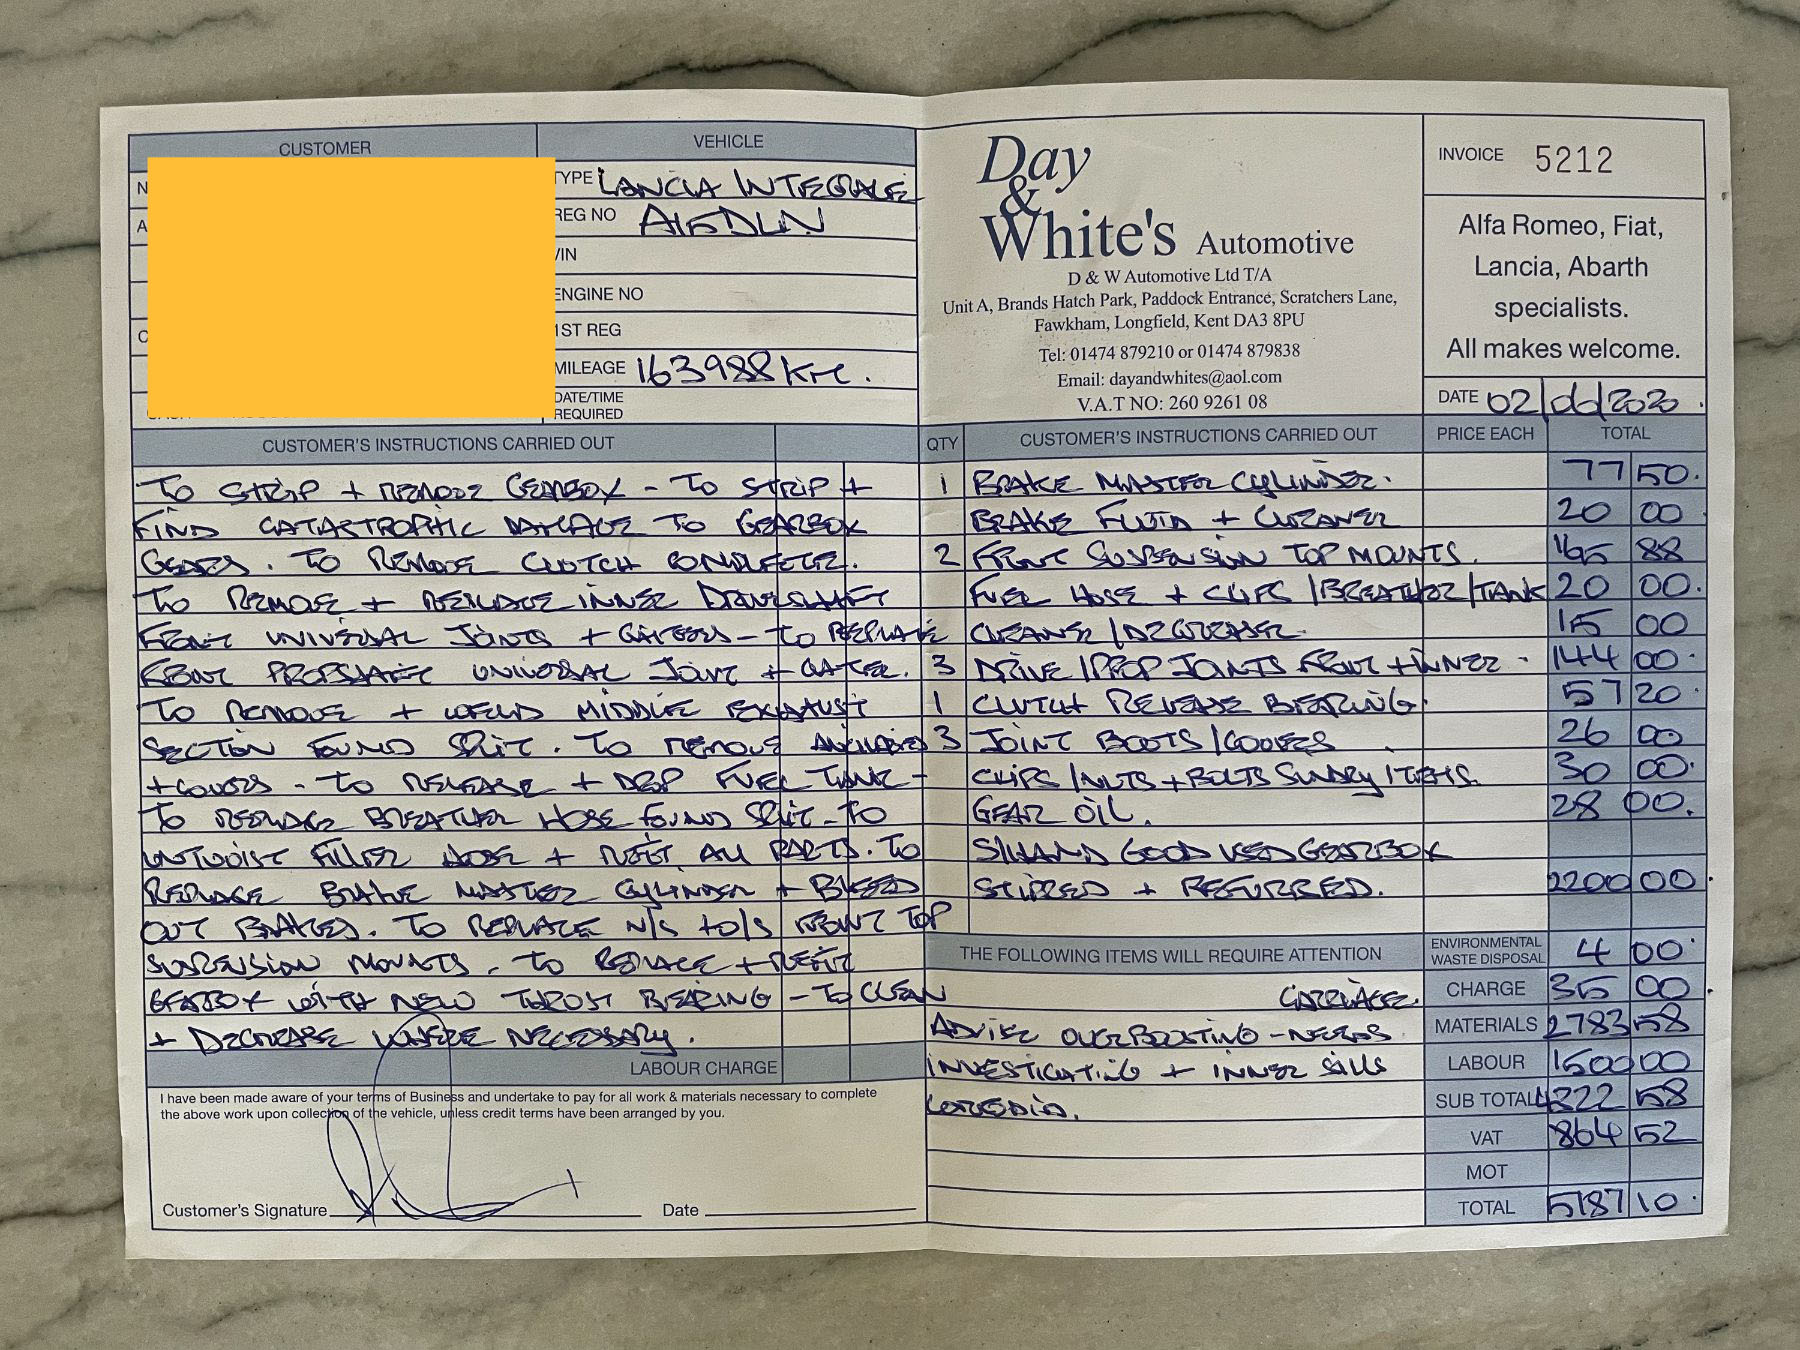 CUSTOMER
VEHICLE
TYPE LANCIA INTEGRALE
REG NO
VIN
ENGINE NO
1ST REG
MILEAGE 163988 Km.
DATE/TIME REQUIRED
Day & White's Automotive
D & W Automotive Ltd T/A
Unit A, Brands Hatch Park, Paddock Entrance, Scratchers Lane,
Fawkham, Longfield, Kent DA3 8PU
Tel: 01474 879210 or 01474 879838
Email: dayandwhites@aol.com
V.A.T NO: 260 9261 08
INVOICE 5212
Alfa Romeo, Fiat,
Lancia, Abarth
specialists.
All makes welcome.
DATE 02/ /2020.
CUSTOMER'S INSTRUCTIONS CARRIED OUT
TO STRIP + REMOVE GEARBOX - TO STRIP +
FIND CATASTROPHIC DAMAGE TO GEARBOX
GEARS. TO REMOVE CLUTCH COMPLETE.
TO REMOVE + REPLACE INNER DRIVESHAFT
FRONT UNIVERSAL JOINTS + GAITERS - TO REPLACE
FRONT PROPSHAFT UNIVERSAL JOINT + GAITER.
TO REMOVE + WELD MIDDLE EXHAUST
SECTION FOUND SPLIT. TO REMOVE
+ COVERS - TO RELEASE + DROP FUEL TANK -
TO REPLACE BREATHER HOSE FOUND SPLIT - TO
UNTWIST FILLER HOSE + REFIT ALL PARTS. TO
REPLACE BRAKE MASTER CYLINDER + BLEED
OUT BRAKES. TO REPLACE N/S + O/S FRONT TOP
SUSPENSION MOUNTS. TO REPLACE + REFIT
GEARBOX WITH NEW THRUST BEARING - TO CLEAN
+ DEGREASE WHERE NECESSARY.
LABOUR CHARGE
I have been made aware of your terms of Business and undertake to pay for all work & materials necessary to complete
the above work upon collection of the vehicle, unless credit terms have been arranged by you.
Customer's Signature
Date
QTY CUSTOMER'S INSTRUCTIONS CARRIED OUT PRICE EACH TOTAL
1 BRAKE MASTER CYLINDER. 77 50.
BRAKE FLUID + CLEANER 20 00
2 FRONT SUSPENSION TOP MOUNTS. 165 88
FUEL HOSE + CLIPS / BREATHER / TANK 20 00.
CLEANER / DEGREASER. 15 00
3 DRIVE / PROP JOINTS FRONT + INNER - 144 00.
1 CLUTCH RELEASE BEARING. 57 20.
3 JOINT BOOTS / COVERS 26 00
CLIPS / NUTS + BOLTS SUNDRY ITEMS. 30 00.
GEAR OIL. 28 00.
S/HAND GOOD USED GEARBOX
STRIPPED + REFURBED. 2200 00.
THE FOLLOWING ITEMS WILL REQUIRE ATTENTION
ENVIRONMENTAL WASTE DISPOSAL 4 00
CARRIAGE. CHARGE 35 00.
ADVISE OVERBOOSTING - NEEDS
INVESTIGATING + INNER SILLS
CORRODING.
MATERIALS 2783 58
LABOUR 1500 00
SUB TOTAL 4322 58
VAT 864 52
MOT
TOTAL 5187 10.